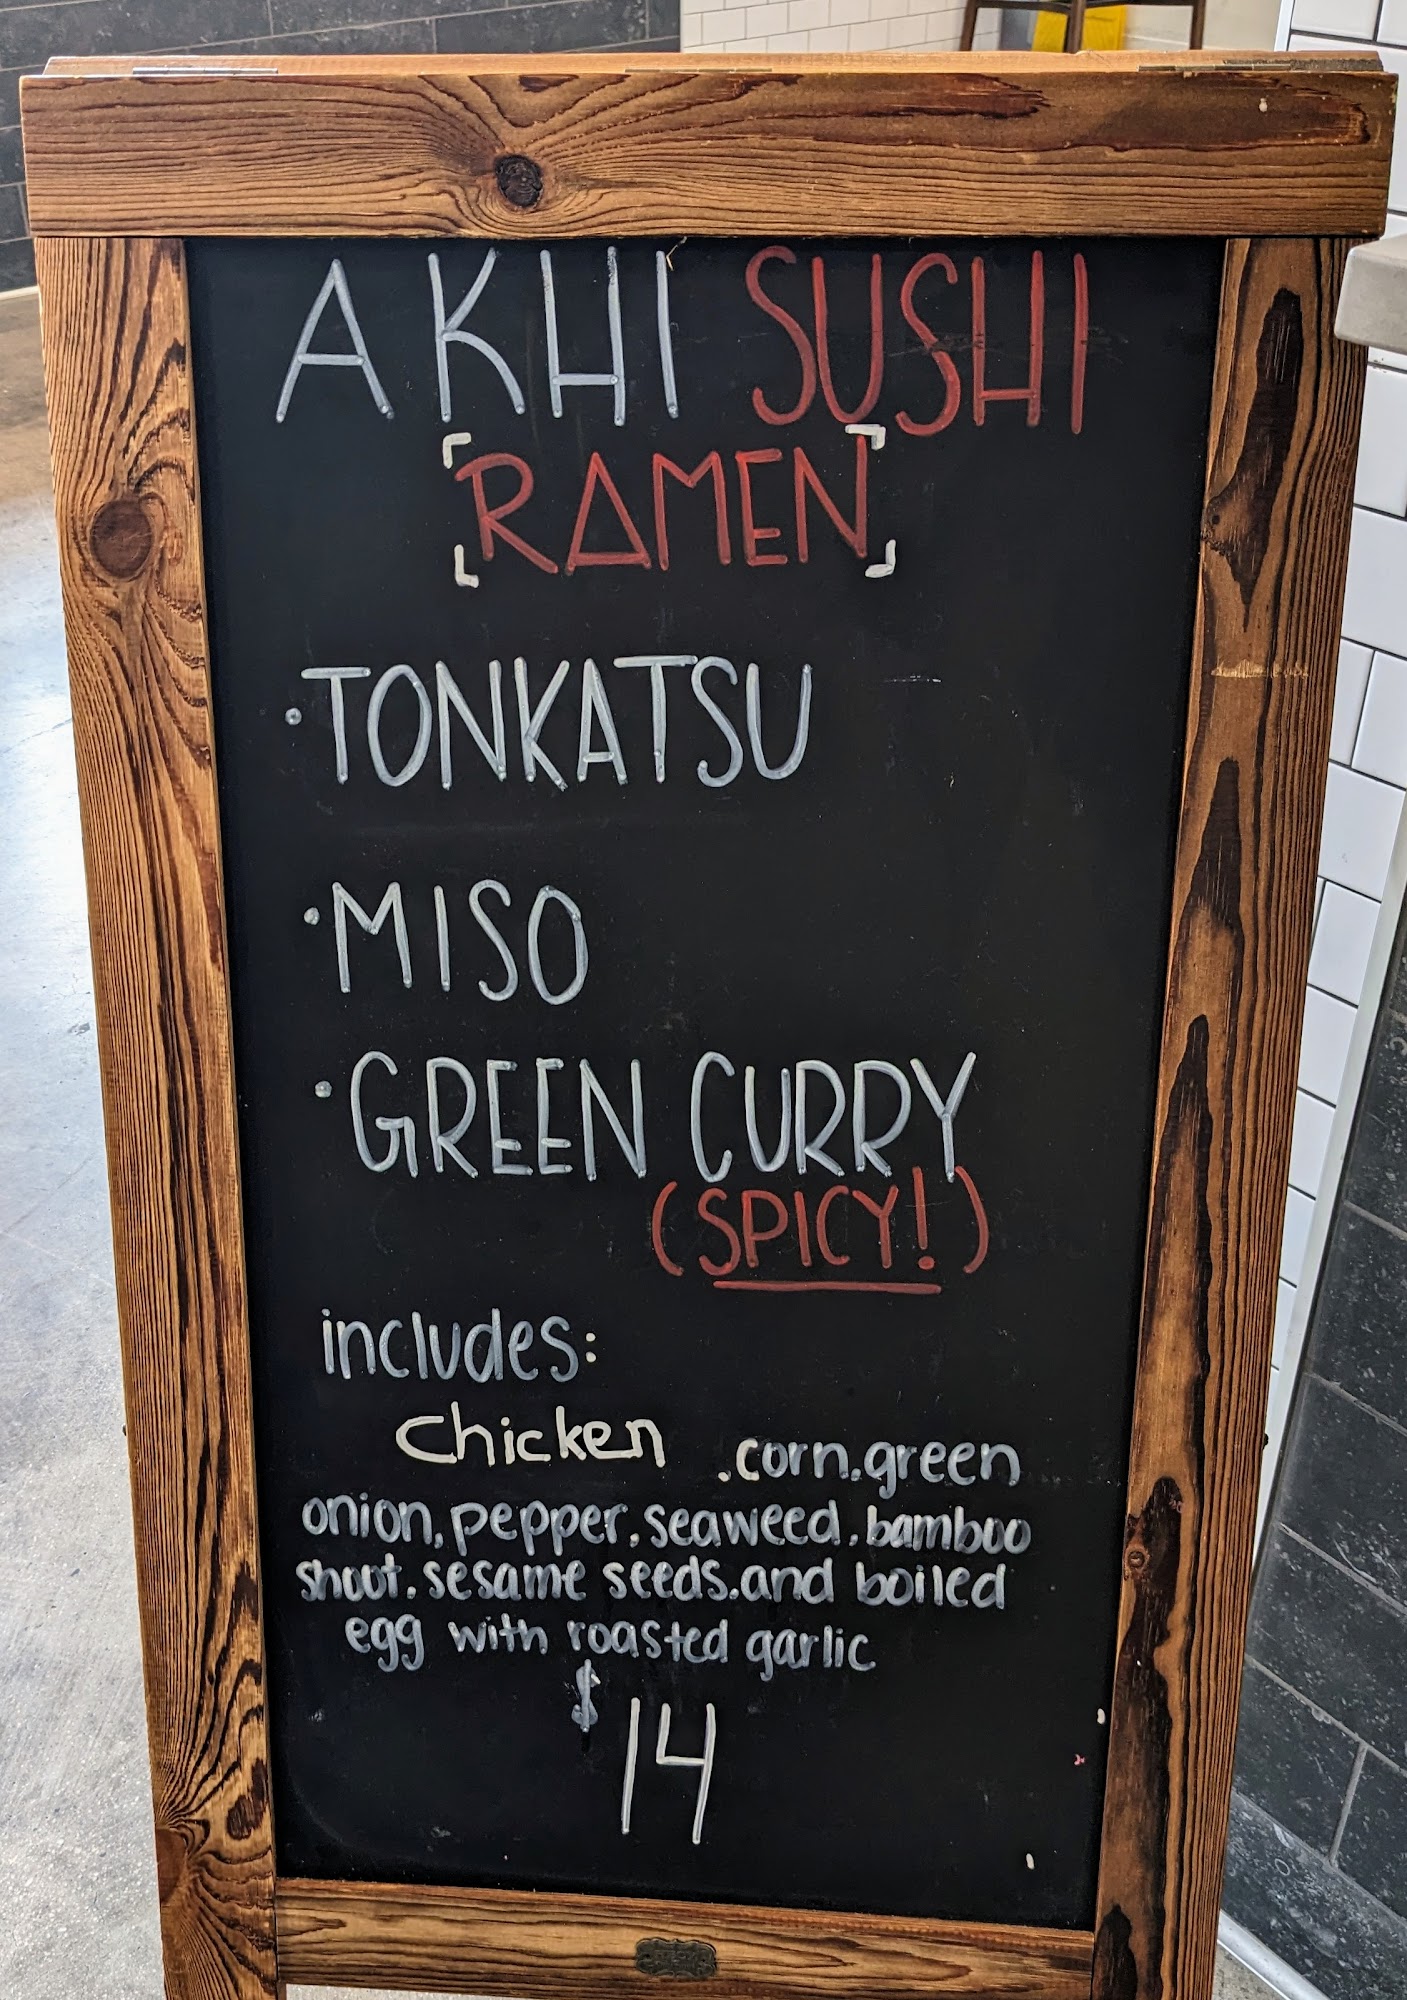 AKHI SUSHI
RAMEN
· TONKATSU
· MISO
· GREEN CURRY
(SPICY!)
includes:
chicken .corn.green
onion, pepper, seaweed, bamboo
shoot. sesame seeds.and boiled
egg with roasted garlic
$14